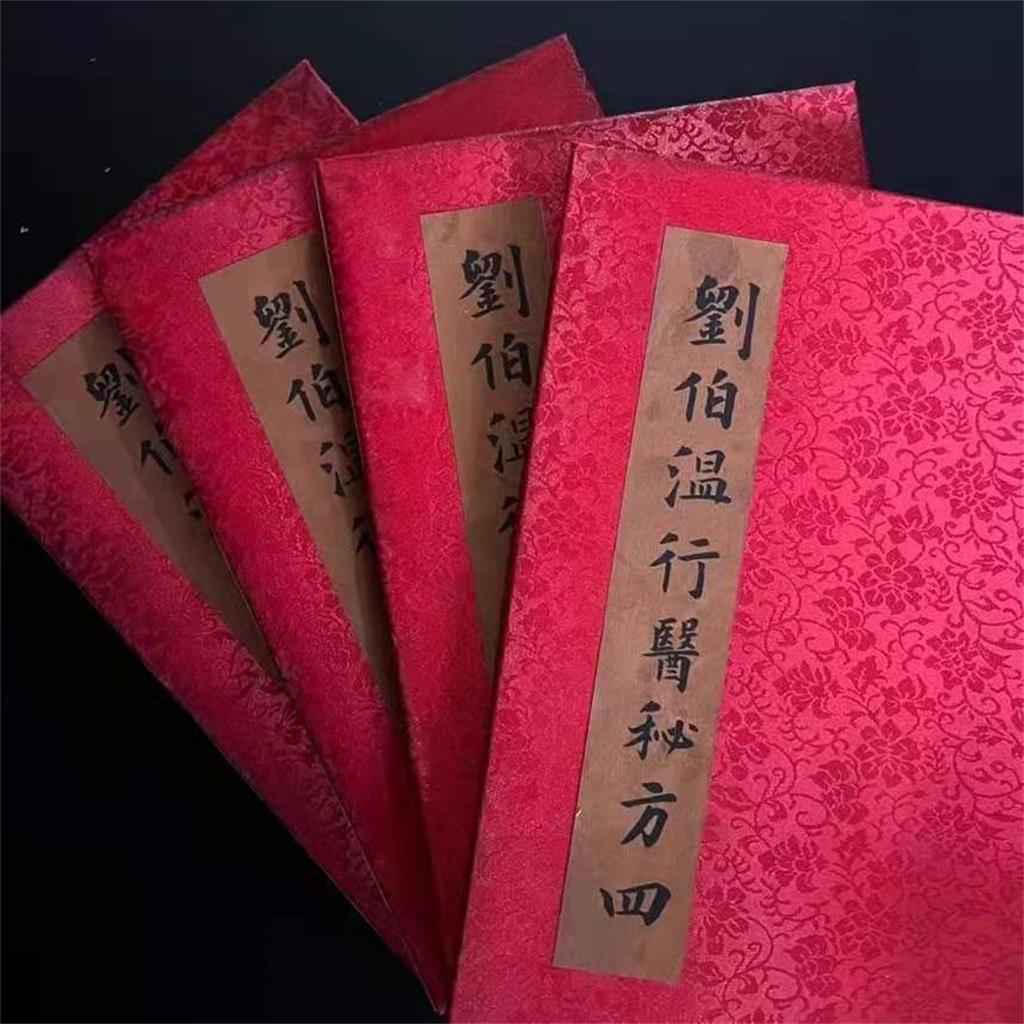 劉伯温行醫秘方四
劉伯温
劉伯温
劉伯